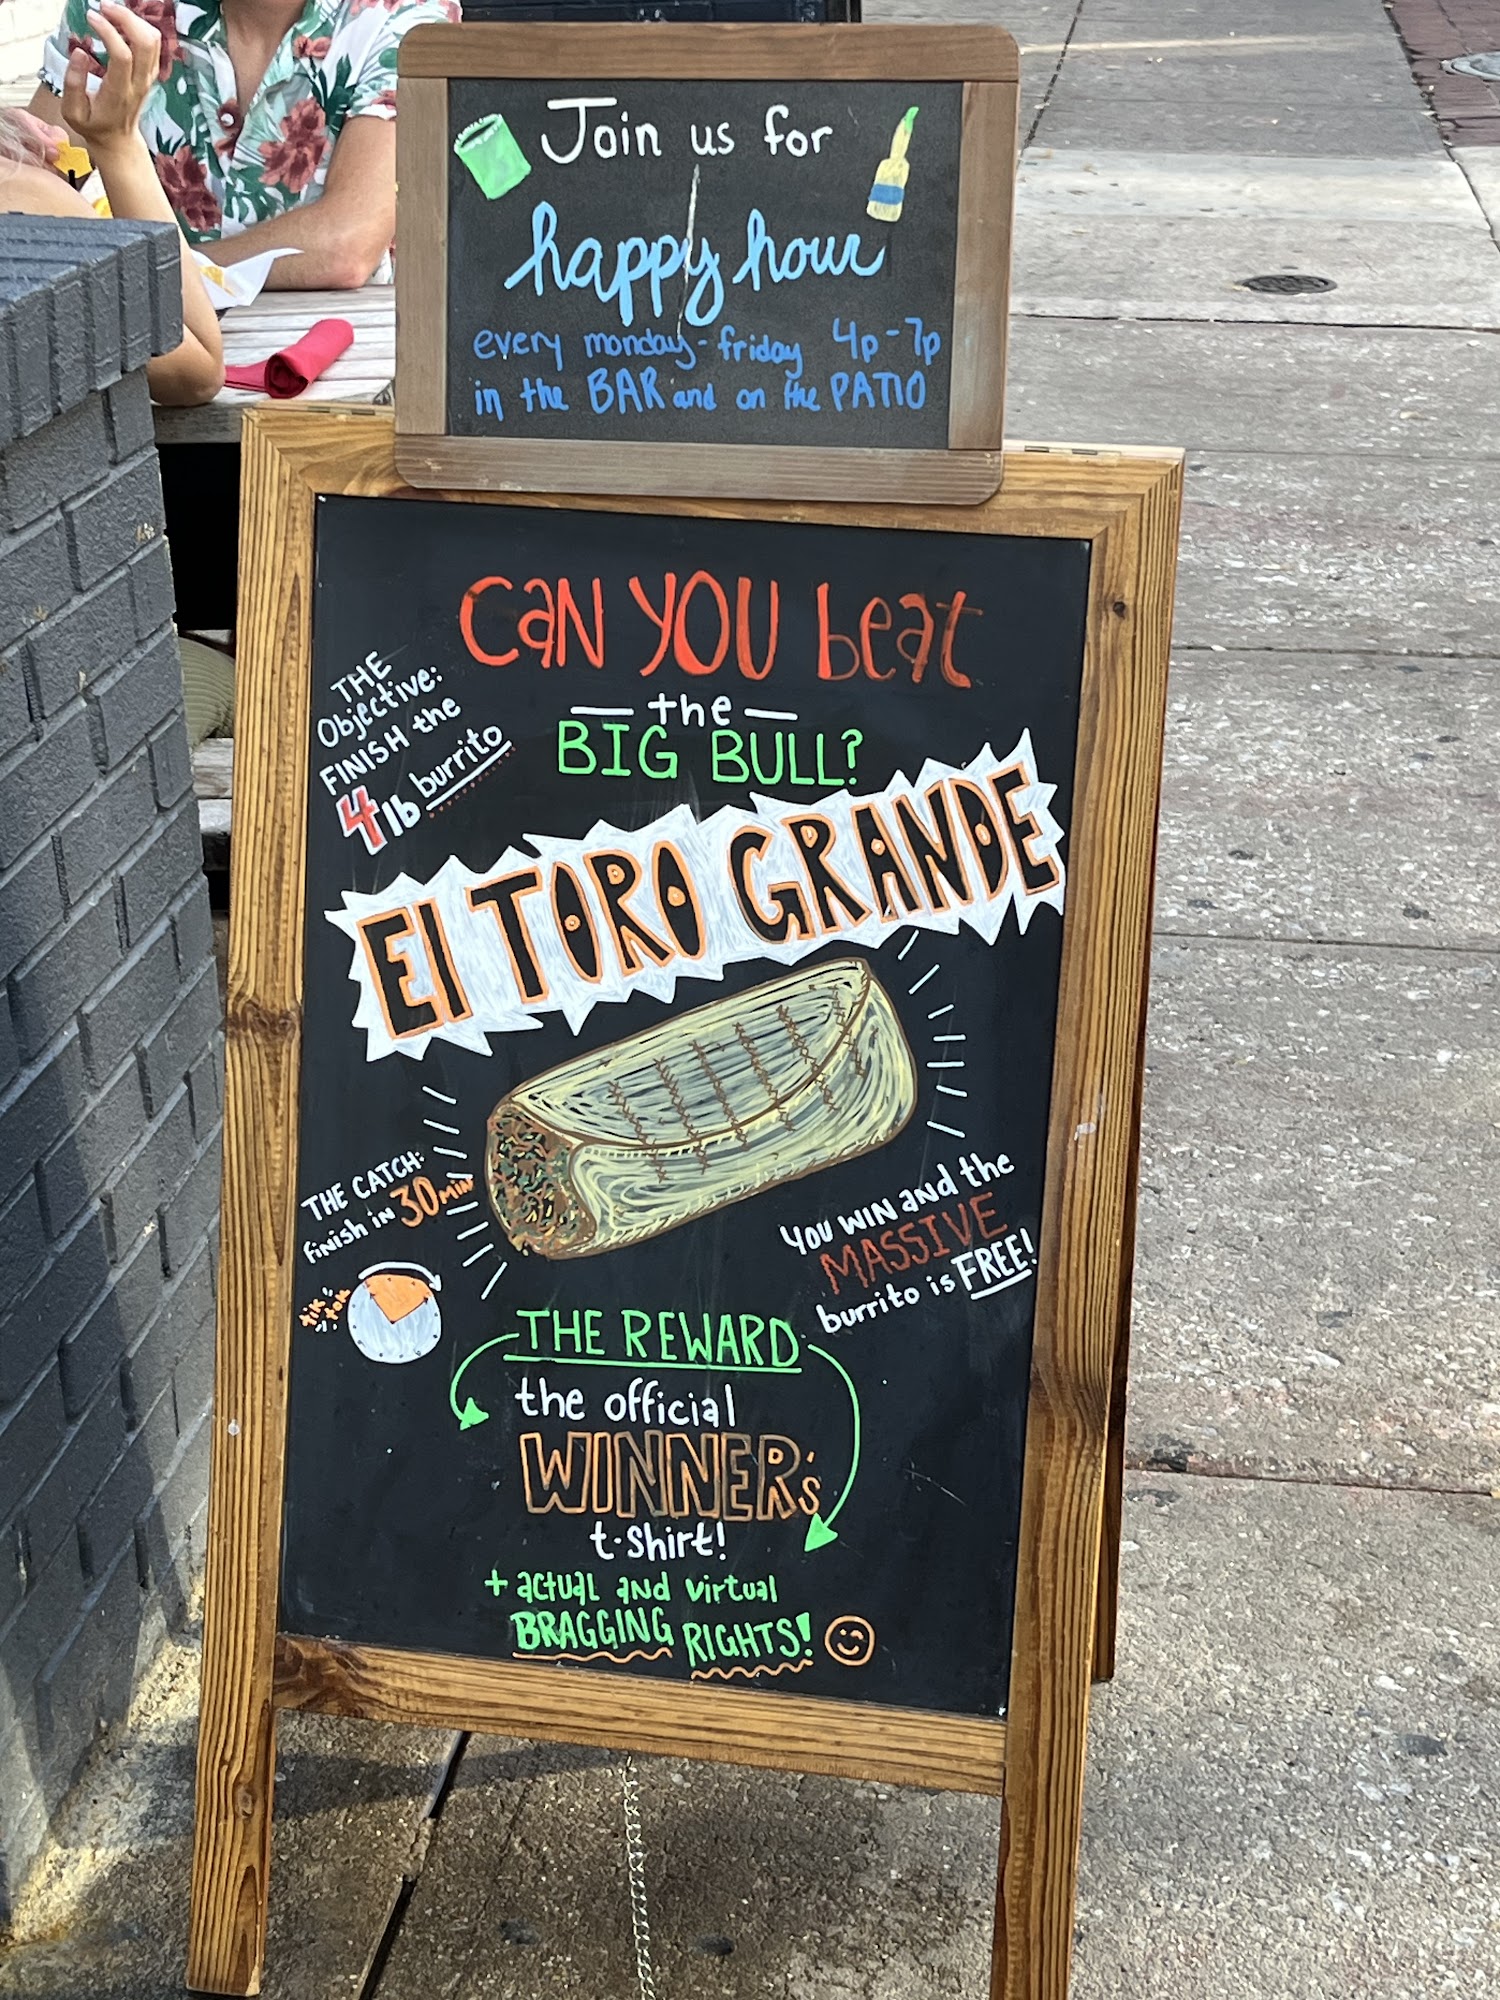 Join us for
happy hour
every monday-friday 4p-7p
in the BAR and on the PATIO
CaN YOU beat
the
BIG BULL?
THE
Objective:
FINISH the
4lb burrito
El TORO GRANDE
THE CATCH:
finish in 30 MIN
"tik
tok"
YOU WIN and the
MASSIVE
burrito is FREE!
THE REWARD
the official
WINNER's
t-shirt!
+ actual and virtual
BRAGGING RIGHTS!